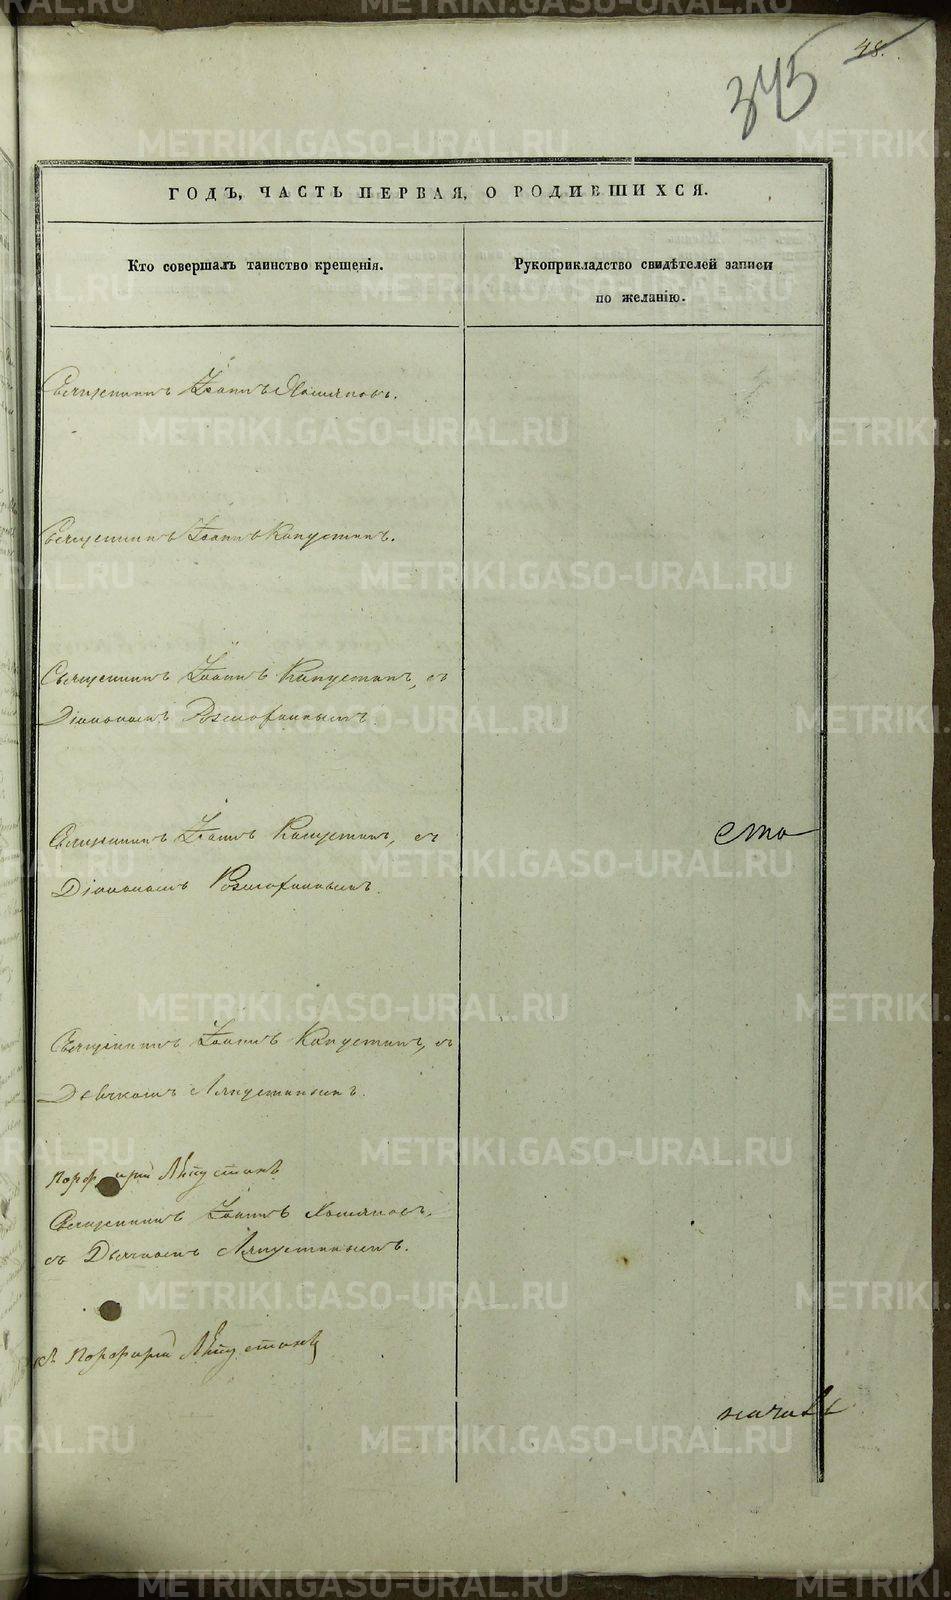 48.
345
ГОДЪ, ЧАСТЬ ПЕРВАЯ, О РОДИВШИХСЯ.
Кто совершалъ таинство крещенія.
Рукоприкладство свидѣтелей записи
по желанію.
Священникъ Іоаннъ
Священникъ Іоаннъ Капустинъ.
Священникъ Іоаннъ Капустинъ, съ
Діакономъ
Священникъ Іоаннъ Капустинъ, съ
сто
Діакономъ
Священникъ Іоаннъ Капустинъ, съ
Дьячкомъ Ляпустинымъ.
Порфирій Ляпустинъ
Священникъ Іоаннъ
съ Дьячкомъ Ляпустинымъ.
Порфирій Ляпустинъ
METRIKI.GASO-URAL.RU